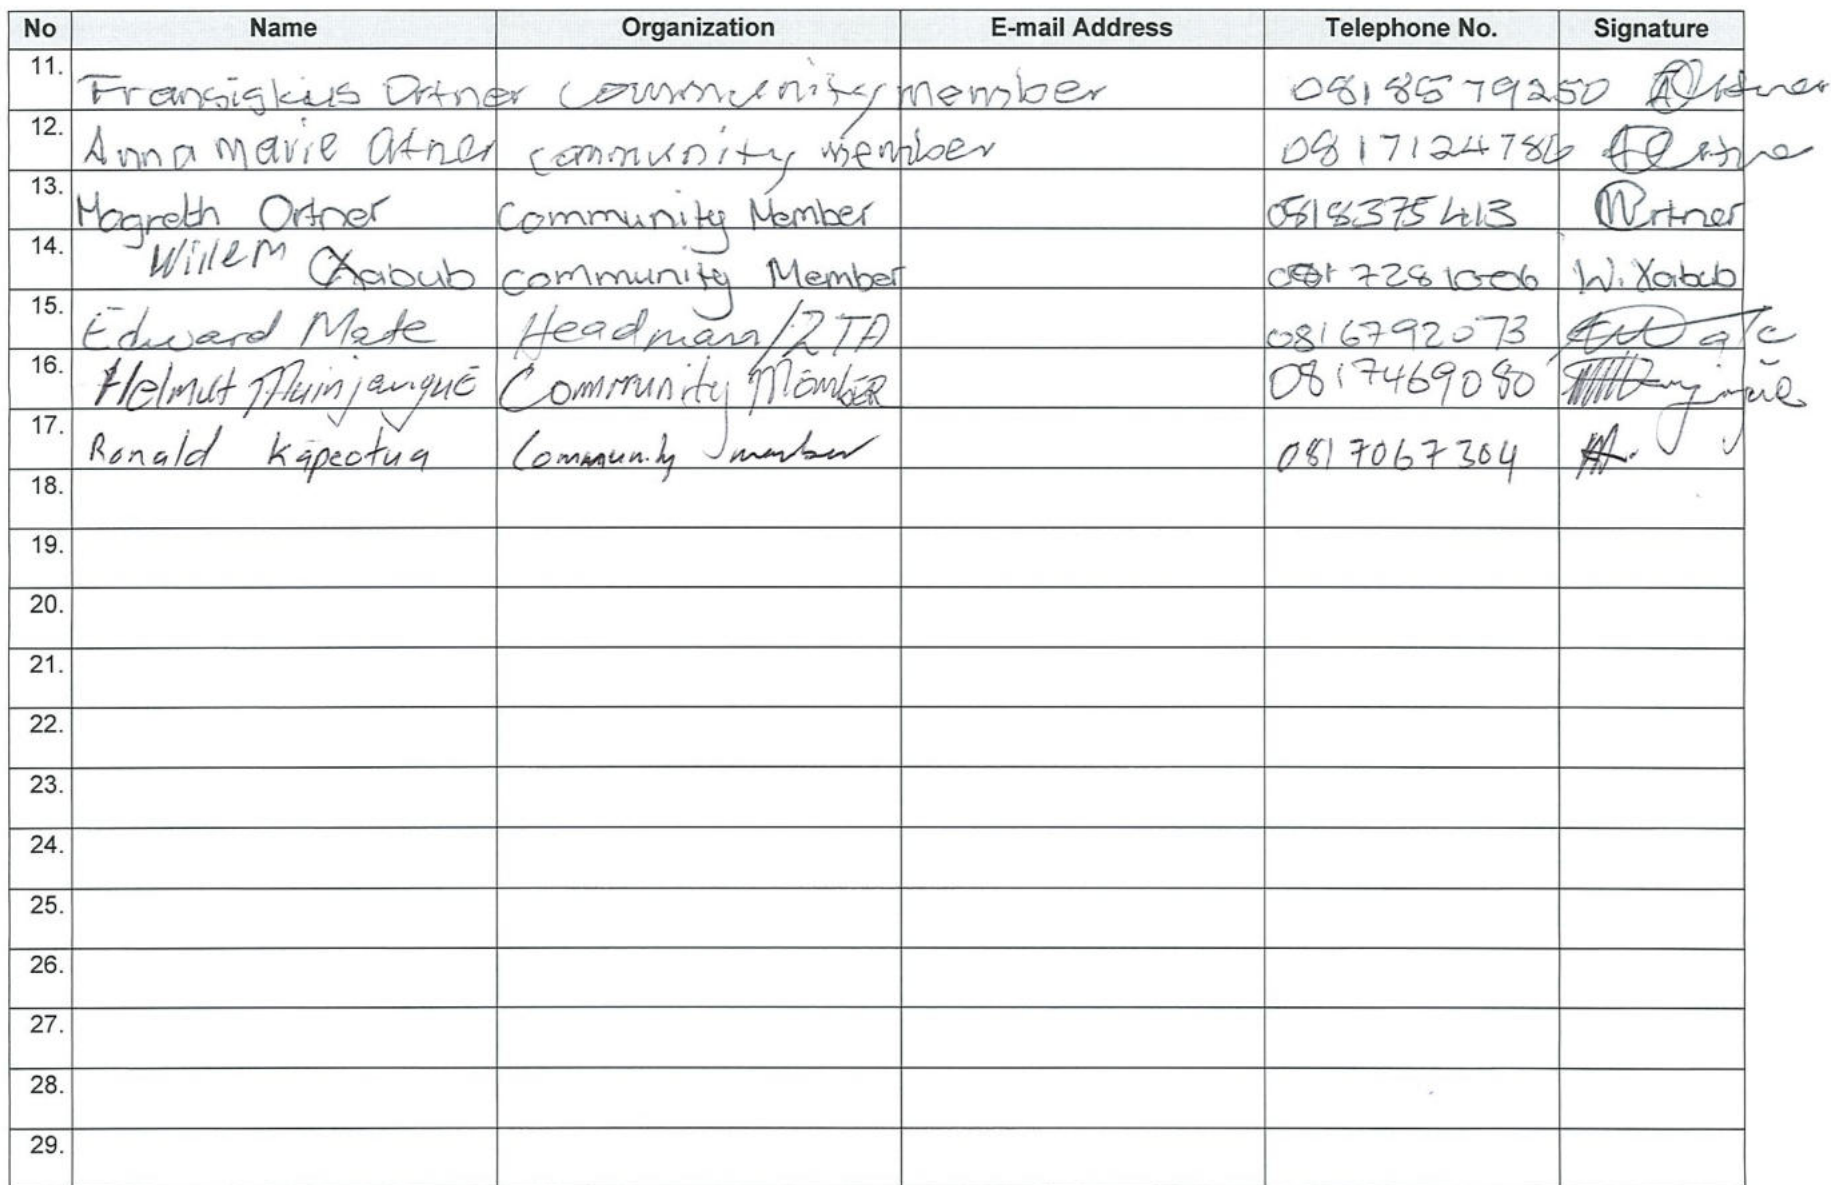 No Name Organization E-mail Address Telephone No. Signature
11. Fransiskus Ortner Community member 0818579250
12. Anna marie Otner community member 0817124786
13. Magreth Ortner Community Member 0818375413
14. Willem Xabub community Member W. Xabub
15. Edward Mate Headman/ZTA 0816792073
16. Helmut Muinjangue Community Member 0817469080
17. Ronald Kapeotua Community member 0817067304
18.
19.
20.
21.
22.
23.
24.
25.
26.
27.
28.
29.